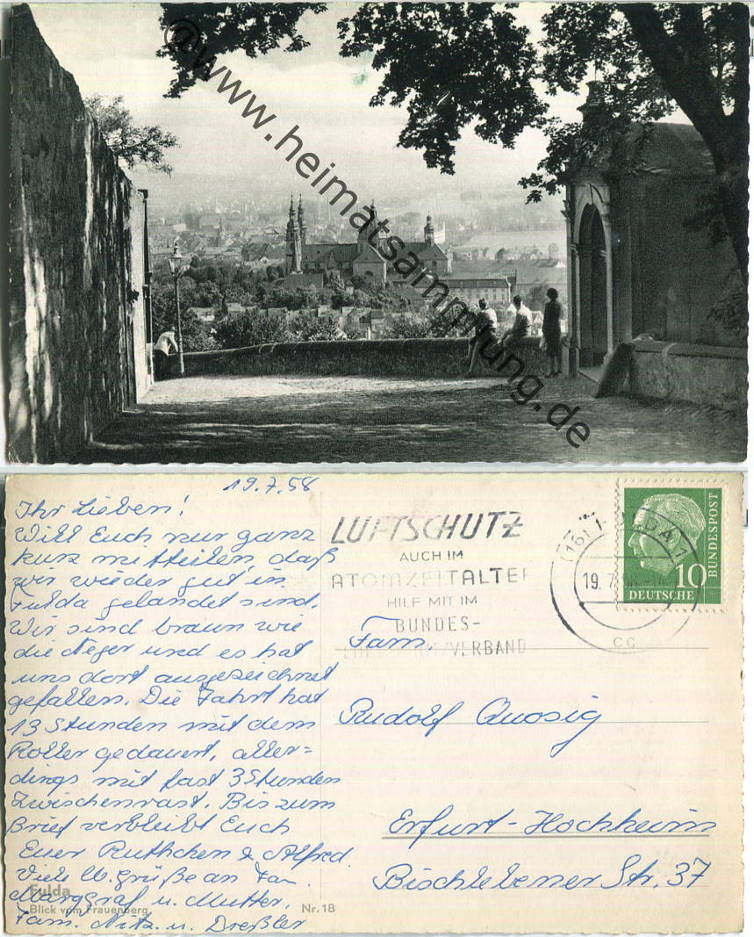 @www.heimatsammlung.de
19.7.58
Ihr Lieben!
Will Euch nur ganz
kurz mitteilen, daß
wir wieder gut in
Fulda gelandet sind.
Wir sind braun wie
die Neger und es hat
uns dort ausgezeichnet
gefallen. Die Fahrt hat
13 Stunden mit dem
Roller gedauert, aller=
dings mit fast 3 Stunden
Zwischenrast. Bis zum
Brief verbleibt Euch
Euer Ruthchen & Alfred.
Viele U. Grüße an Fam.
Marggraf u. Mutter,
Fam. Nitz u. Dreßler
Fulda
Blick vom Frauenberg
Nr. 18
LUFTSCHUTZ
AUCH IM
ATOMZEITALTER
HILF MIT IM
BUNDES-
VERBAND
(16) FULDA 1
19.7.
cc
10
DEUTSCHE
BUNDESPOST
Fam.
Rudolf Quosig
Erfurt-Hochheim
Bischlebener Str. 37